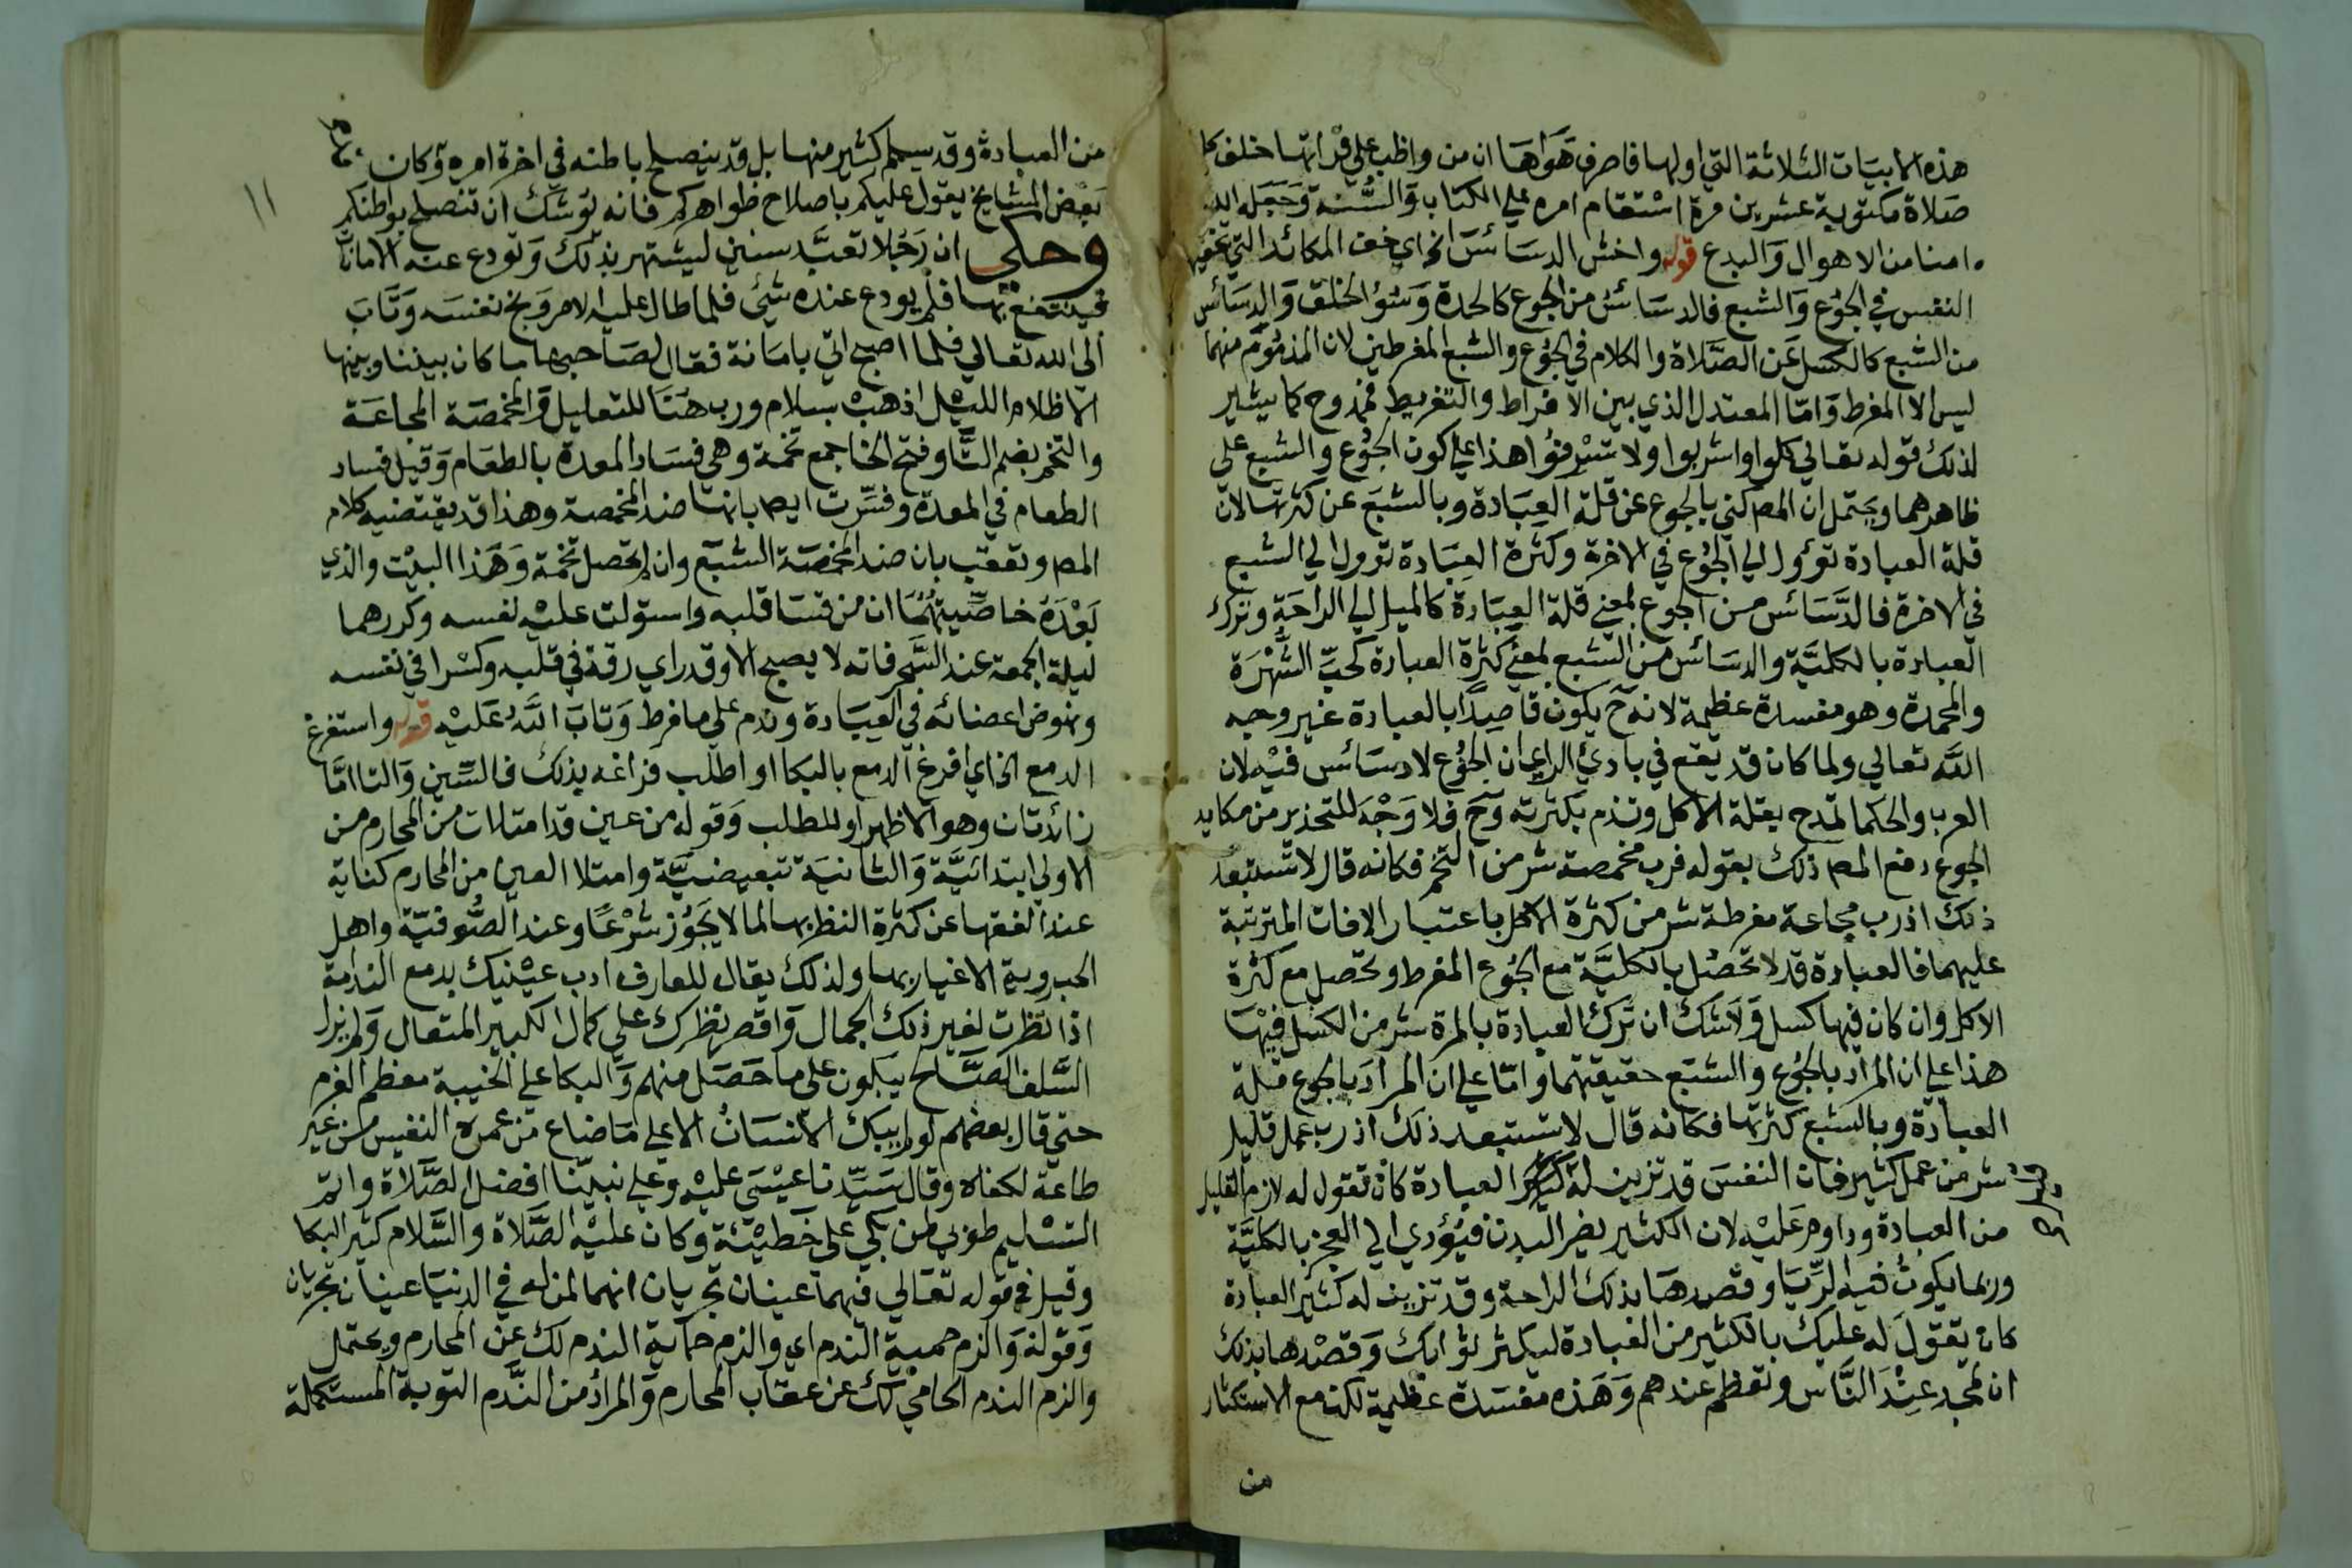 هذه الابيات الثلاثة التي اولها فاصرف هواها ان من واظب علي قراتها خلف كل
صلاة مكتوبة عشرين مرة استقام امره علي الكتاب والسنة وجعله الله
امنا من الاهوال والبدع قوله واخش الدسائس الخ اي خف المكائد التي تخفيها
النفس في الجوع والشبع فالدسائس من الجوع كالحدة وسؤ الخلق والدسائس
من الشبع كالكسل عن الصلاة والكلام في الجوع والشبع المفرطين لان المذموم منهما
ليس الا المفرط واما المعتدل الذي بين الافراط والتفريط فممدوح كما يشير
لذلك قوله تعالي كلوا واشربوا ولا تسرفوا هذا علي كون الجوع والشبع علي
ظاهرهما ويحتمل ان المص كني بالجوع عن قلة العبادة وبالشبع عن كثرتها لان
قلة العبادة تؤول الي الجوع في الاخرة وكثرة العبادة تؤول الي الشبع
في الاخرة فالدسائس من الجوع بمعني قلة العبادة كالميل الي الراحة وترك
العبادة بالكلية والدسائس من الشبع بمعني كثرة العبادة كحب الشهرة
والمحمدة وهو مفسدة عظيمة لانه ح يكون قاصدا بالعبادة غير وجه
الله تعالي ولما كان قد يقع في بادئ الراي ان الجوع لا دسائس فيه لان
العرب والحكما تمدح بقلة الاكل وتذم بكثرته وح فلا وجه للتحذير من مكايد
الجوع دفع المص ذلك بقوله فرب مخمصة شر من التخم فكانه قال لا تستبعد
ذلك اذ رب مجاعة مفرطة شر من كثرة الاكل باعتبار الافات المترتبة
عليهما فالعبادة قد لا تحصل بالكلية مع الجوع المفرط وتحصل مع كثرة
الاكل وان كان فيها كسل ولا شك ان ترك العبادة بالمرة شر من الكسل فيها
هذا علي ان المراد بالجوع والشبع حقيقتهما واما علي ان المراد بالجوع قلة
العبادة وبالشبع كثرتها فكانه قال لا تستبعد ذلك اذ رب عمل قليل
شر من عمل كثير فان النفس قد تزين له العبادة كان تقول له لازم القليل
من العبادة وداوم عليه لان الكثير يضر البدن فيؤدي الي العجز بالكلية
وربما يكون فيه الريا وقصدها بذلك الراحة وقد تزين له كثير العبادة
كان تقول له عليك بالكثير من العبادة ليكثر ثوابك وقصدها بذلك
ان تحمد عند الناس وتعظم عندهم وهذه مفسدة عظيمة لكن مع الاستكثار
من
١١
من العبادة وقد يسلم كثير منها بل قد ينصلح باطنه في اخرة امره وكان
بعض المشايخ يقول عليكم باصلاح ظواهركم فانه يوشك ان تنصلح بواطنكم
وحكي ان رجلا تعبد سنين ليشتهر بذلك وتودع عنده الامانات
فينتفع بها فلم يودع عنده شئ فلما طال عليه الامر وبخ نفسه وتاب
الي الله تعالي فلما اصبح اتي بامانة فقال لصاحبها ما كان بيننا وبينها
الا ظلام الليل اذهب بسلام ورب هنا للتعليل والمخمصة المجاعة
والتخم بضم التا وفتح الخا جمع تخمة وهي فساد المعدة بالطعام وقيل فساد
الطعام في المعدة وفسرت ايض بانها ضد المخمصة وهذا قد يقتضيه كلام
المص وتعقب بان ضد المخمصة الشبع وان لم تحصل تخمة وهذا البيت والذي
بعده خاصيتهما ان من قسا قلبه واستولت عليه نفسه وكررهما
ليلة الجمعة عند السحر فانه لا يصبح الا وقد راي رقة في قلبه وكسرا في نفسه
ونهوض اعضائه في العبادة وندم علي ما فرط وتاب الله عليه قوله واستفرغ
الدمع الخ اي افرغ الدمع بالبكا او اطلب فراغه بذلك فالسين والتا اما
زائدتان وهو الاظهر او للطلب وقوله من عين قد امتلات من المحارم من
الاولي ابتدائية والثانية تبعيضية وامتلا العين من المحارم كناية
عند الفقها عن كثرة النظر بها لما لا يجوز شرعا وعند الصوفية واهل
الحب روية الاغيار بها ولذلك يقال للعارف ادب عينيك بدمع الندامة
اذا نظرت لغير ذلك الجمال واقصر نظرك علي كمال الكبير المتعال ولم يزل
السلف الصالح يبكون علي ما حصل منهم والبكا علي الخيبة معظم الغرم
حتي قال بعضهم لو لم يبك الانسان الا علي ما ضاع من عمره النفيس من غير
طاعة لكفاه وقال سيدنا عيسي عليه وعلي نبينا افضل الصلاة واتم
التسليم طوبي لمن بكي علي خطيئة وكان عليه الصلاة والسلام كثير البكا
وقيل في قوله تعالي فيهما عينان تجريان انهما لمن له في الدنيا عينان تجريان
وقوله والزم حمية الندم اي والزم حماية الندم لك عن المحارم ويحتمل
والزم الندم الحامي لك عن عقاب المحارم والمراد من الندم التوبة المستكملة